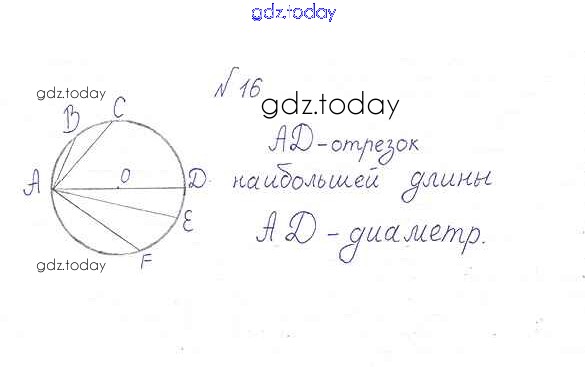 gdz.today
№ 16
gdz.today
gdz.today
B
C
AD-отрезок
A
O
D
наибольшей длины
E
AD-диаметр.
F
gdz.today